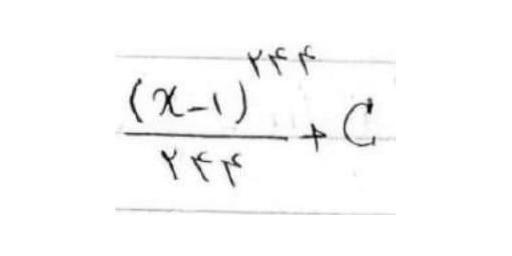 (x-۱)^۲۴۴
/ ۲۴۴ + C